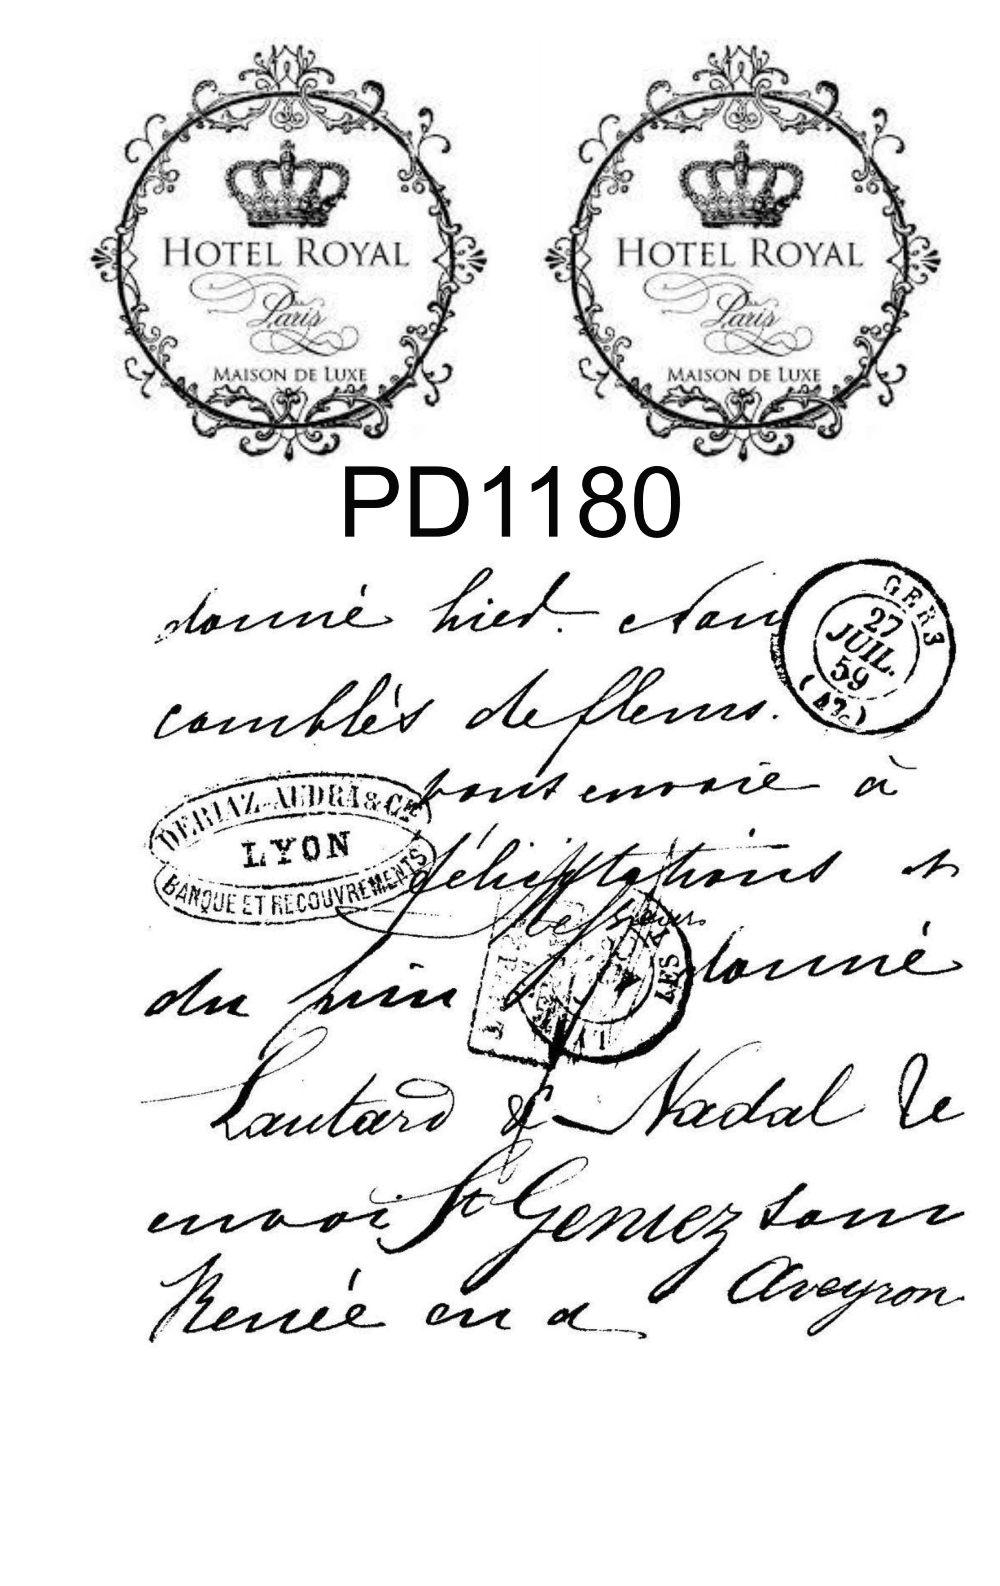 HOTEL ROYAL
Paris
MAISON DE LUXE
HOTEL ROYAL
Paris
MAISON DE LUXE
PD1180
donné hier. Nou
GERS
27
JUIL.
59
comblés de fleurs.
vous envoie à
DERIAZ-AUDRA & CIE
LYON
BANQUE ET RECOUVREMENTS
félicitations et
Messieurs
du donné
Lautard & Nadal le
envoi St Geniez
Renée en a Aveyron